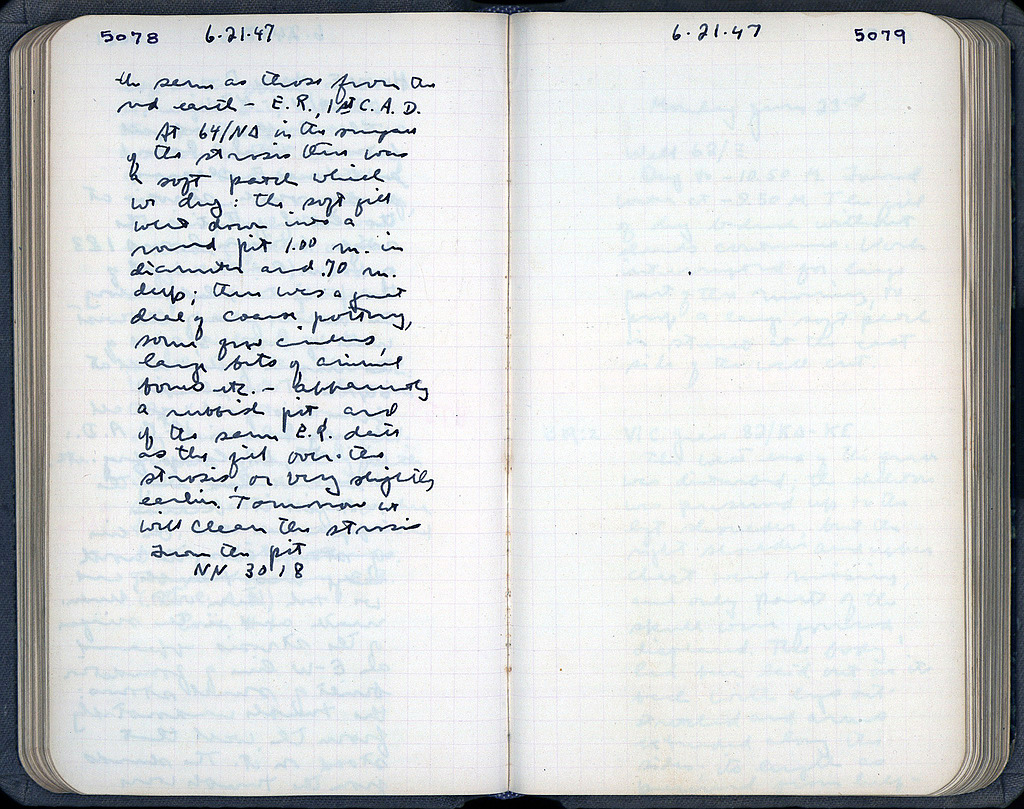 5078 6·21·47
the same as those from the
red earth - E.R., 1st C. A.D.
At 64/ΝΔ in the
of the strosis there was
a soft patch which
we dug: the soft fill
went down into a
round pit 1.00 m. in
diameter and .70 m.
deep; there was a great
deal of coarse pottery,
some cinders,
large bits of animal
bones etc. - apparently
a rubbish pit and
of the same E.R. date
as the fill over the
strosis, or very slightly
earlier. Tomorrow we
will clean the strosis
From the pit
NN 3018
6·21·47 5079